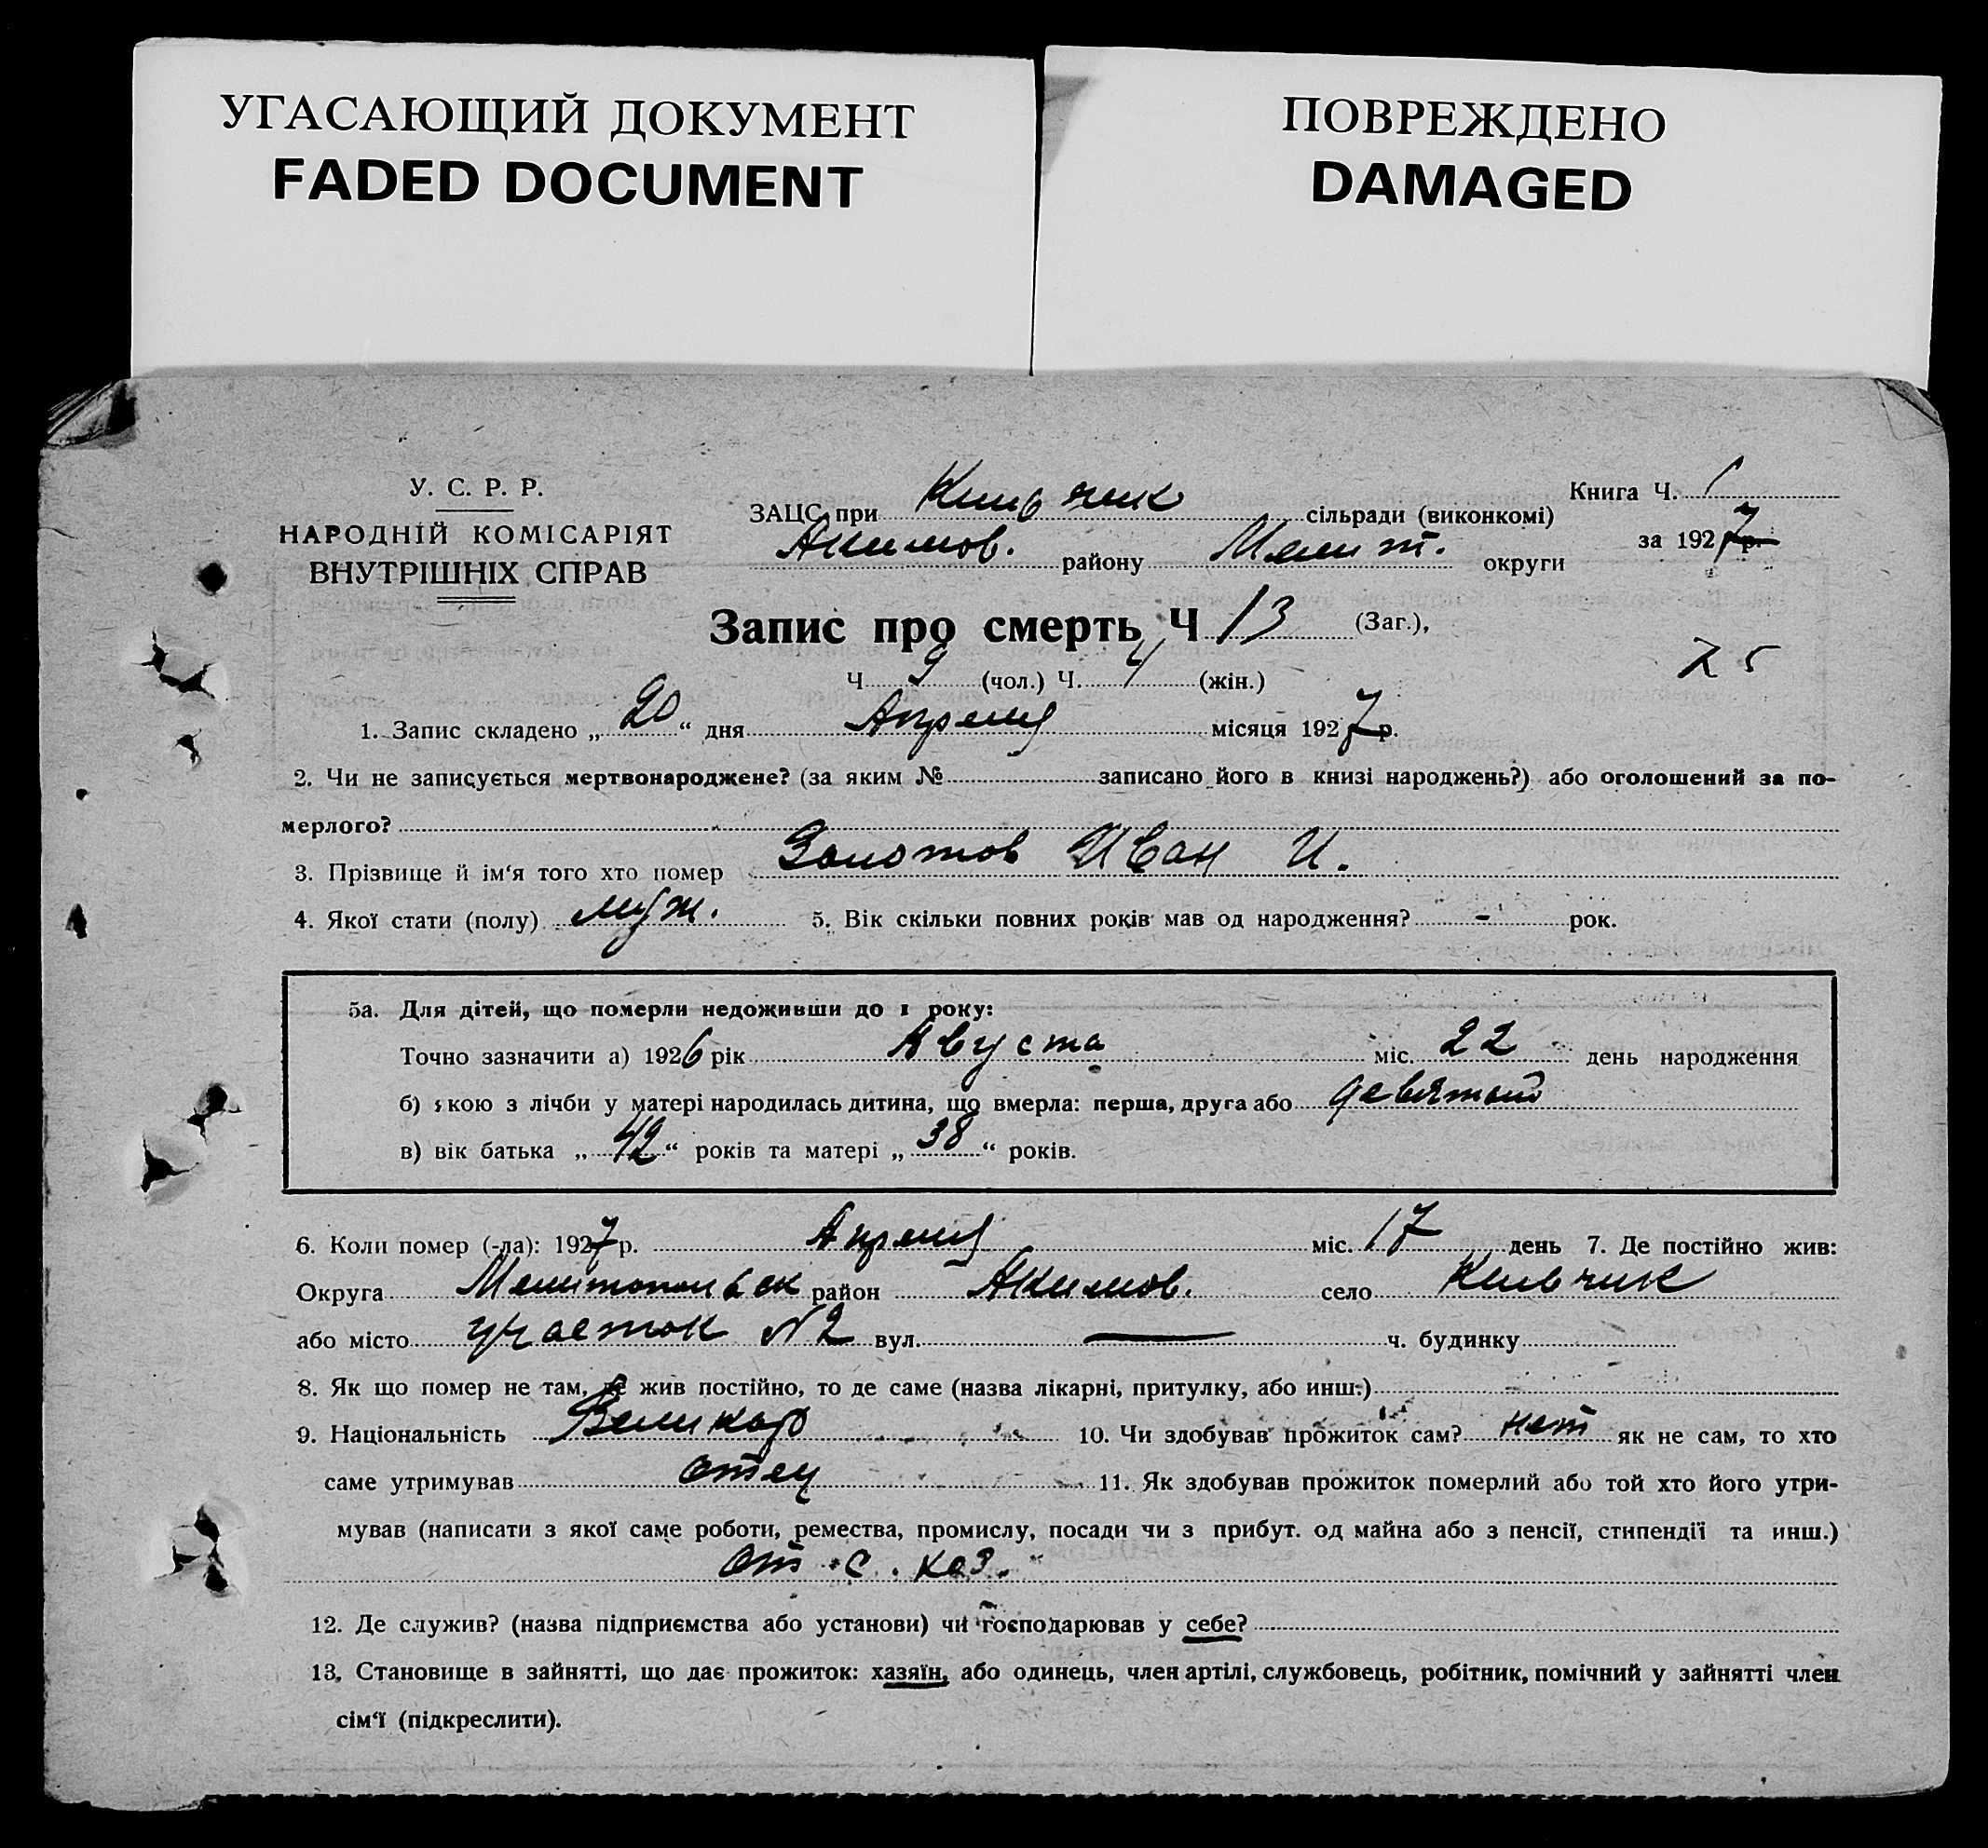 УГАСАЮЩИЙ ДОКУМЕНТ
FADED DOCUMENT
ПОВРЕЖДЕНО
DAMAGED
У. С. Р. Р.
НАРОДНІЙ КОМІСАРІЯТ
ВНУТРІШНІХ СПРАВ
ЗАЦС при Кильчик сільради (виконкомі)
Акимов. району Мелит. округи
Книга Ч. 1
за 1927 р.
Запис про смерть Ч 13 (Заг.),
25
Ч 9 (чол.) Ч. 4 (жін.)
1. Запис складено „20“ дня Апреля місяця 1927 р.
2. Чи не записується мертвонароджене? (за яким № записано його в книзі народжень?) або оголошений за по-
мерлого?
3. Прізвище й ім‘я того хто помер Золотов Иван И.
4. Якої стати (полу) муж. 5. Вік скільки повних років мав од народження? - рок.
5а. Для дітей, що померли недоживши до 1 року:
Точно зазначити а) 1926 рік Августа міс. 22 день народження
б) якою з лічби у матері народилась дитина, що вмерла: перша, друга або девятой
в) вік батька „42“ років та матері „38“ років.
6. Коли помер (-ла): 1927 р. Апреля міс. 17 день 7. Де постійно жив:
Округа Мелитопольск район Акимов. село Кильчик
або місто участок №2 вул. — ч. будинку
8. Як що помер не там, де жив постійно, то де саме (назва лікарні, притулку, або инш.)
9. Національність Великор 10. Чи здобував прожиток сам? нет як не сам, то хто
саме утримував отец 11. Як здобував прожиток померлий або той хто його утри-
мував (написати з якої саме роботи, ремества, промислу, посади чи з прибут. од майна або з пенсії, стипендії та инш.)
от с. хоз.
12. Де служив? (назва підприємства або установи) чи господарював у себе?
13. Становище в зайнятті, що дає прожиток: хазяїн, або одинець, член артілі, службовець, робітник, помічний у зайнятті член
сім‘ї (підкреслити).